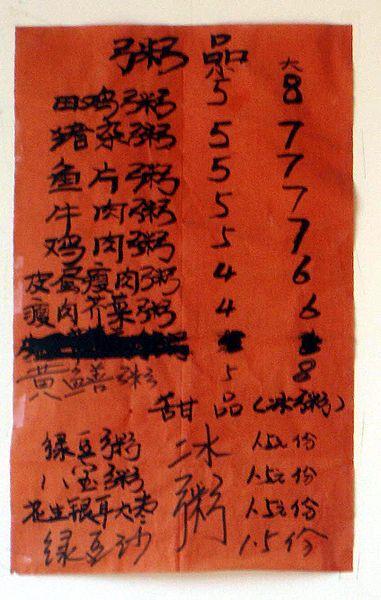 粥品 大
田鸡粥 5 8
猪杂粥 5 7
鱼片粥 5 7
牛肉粥 5 7
鸡肉粥 5 7
皮蛋瘦肉粥 4 6
瘦肉芥菜粥 4 6
黄鳝粥 5 8
甜品(冰粥)
绿豆粥 1.5元份
八宝粥 1.5元份
花生银耳大枣 1.5元份
绿豆沙 1.5份
冰粥